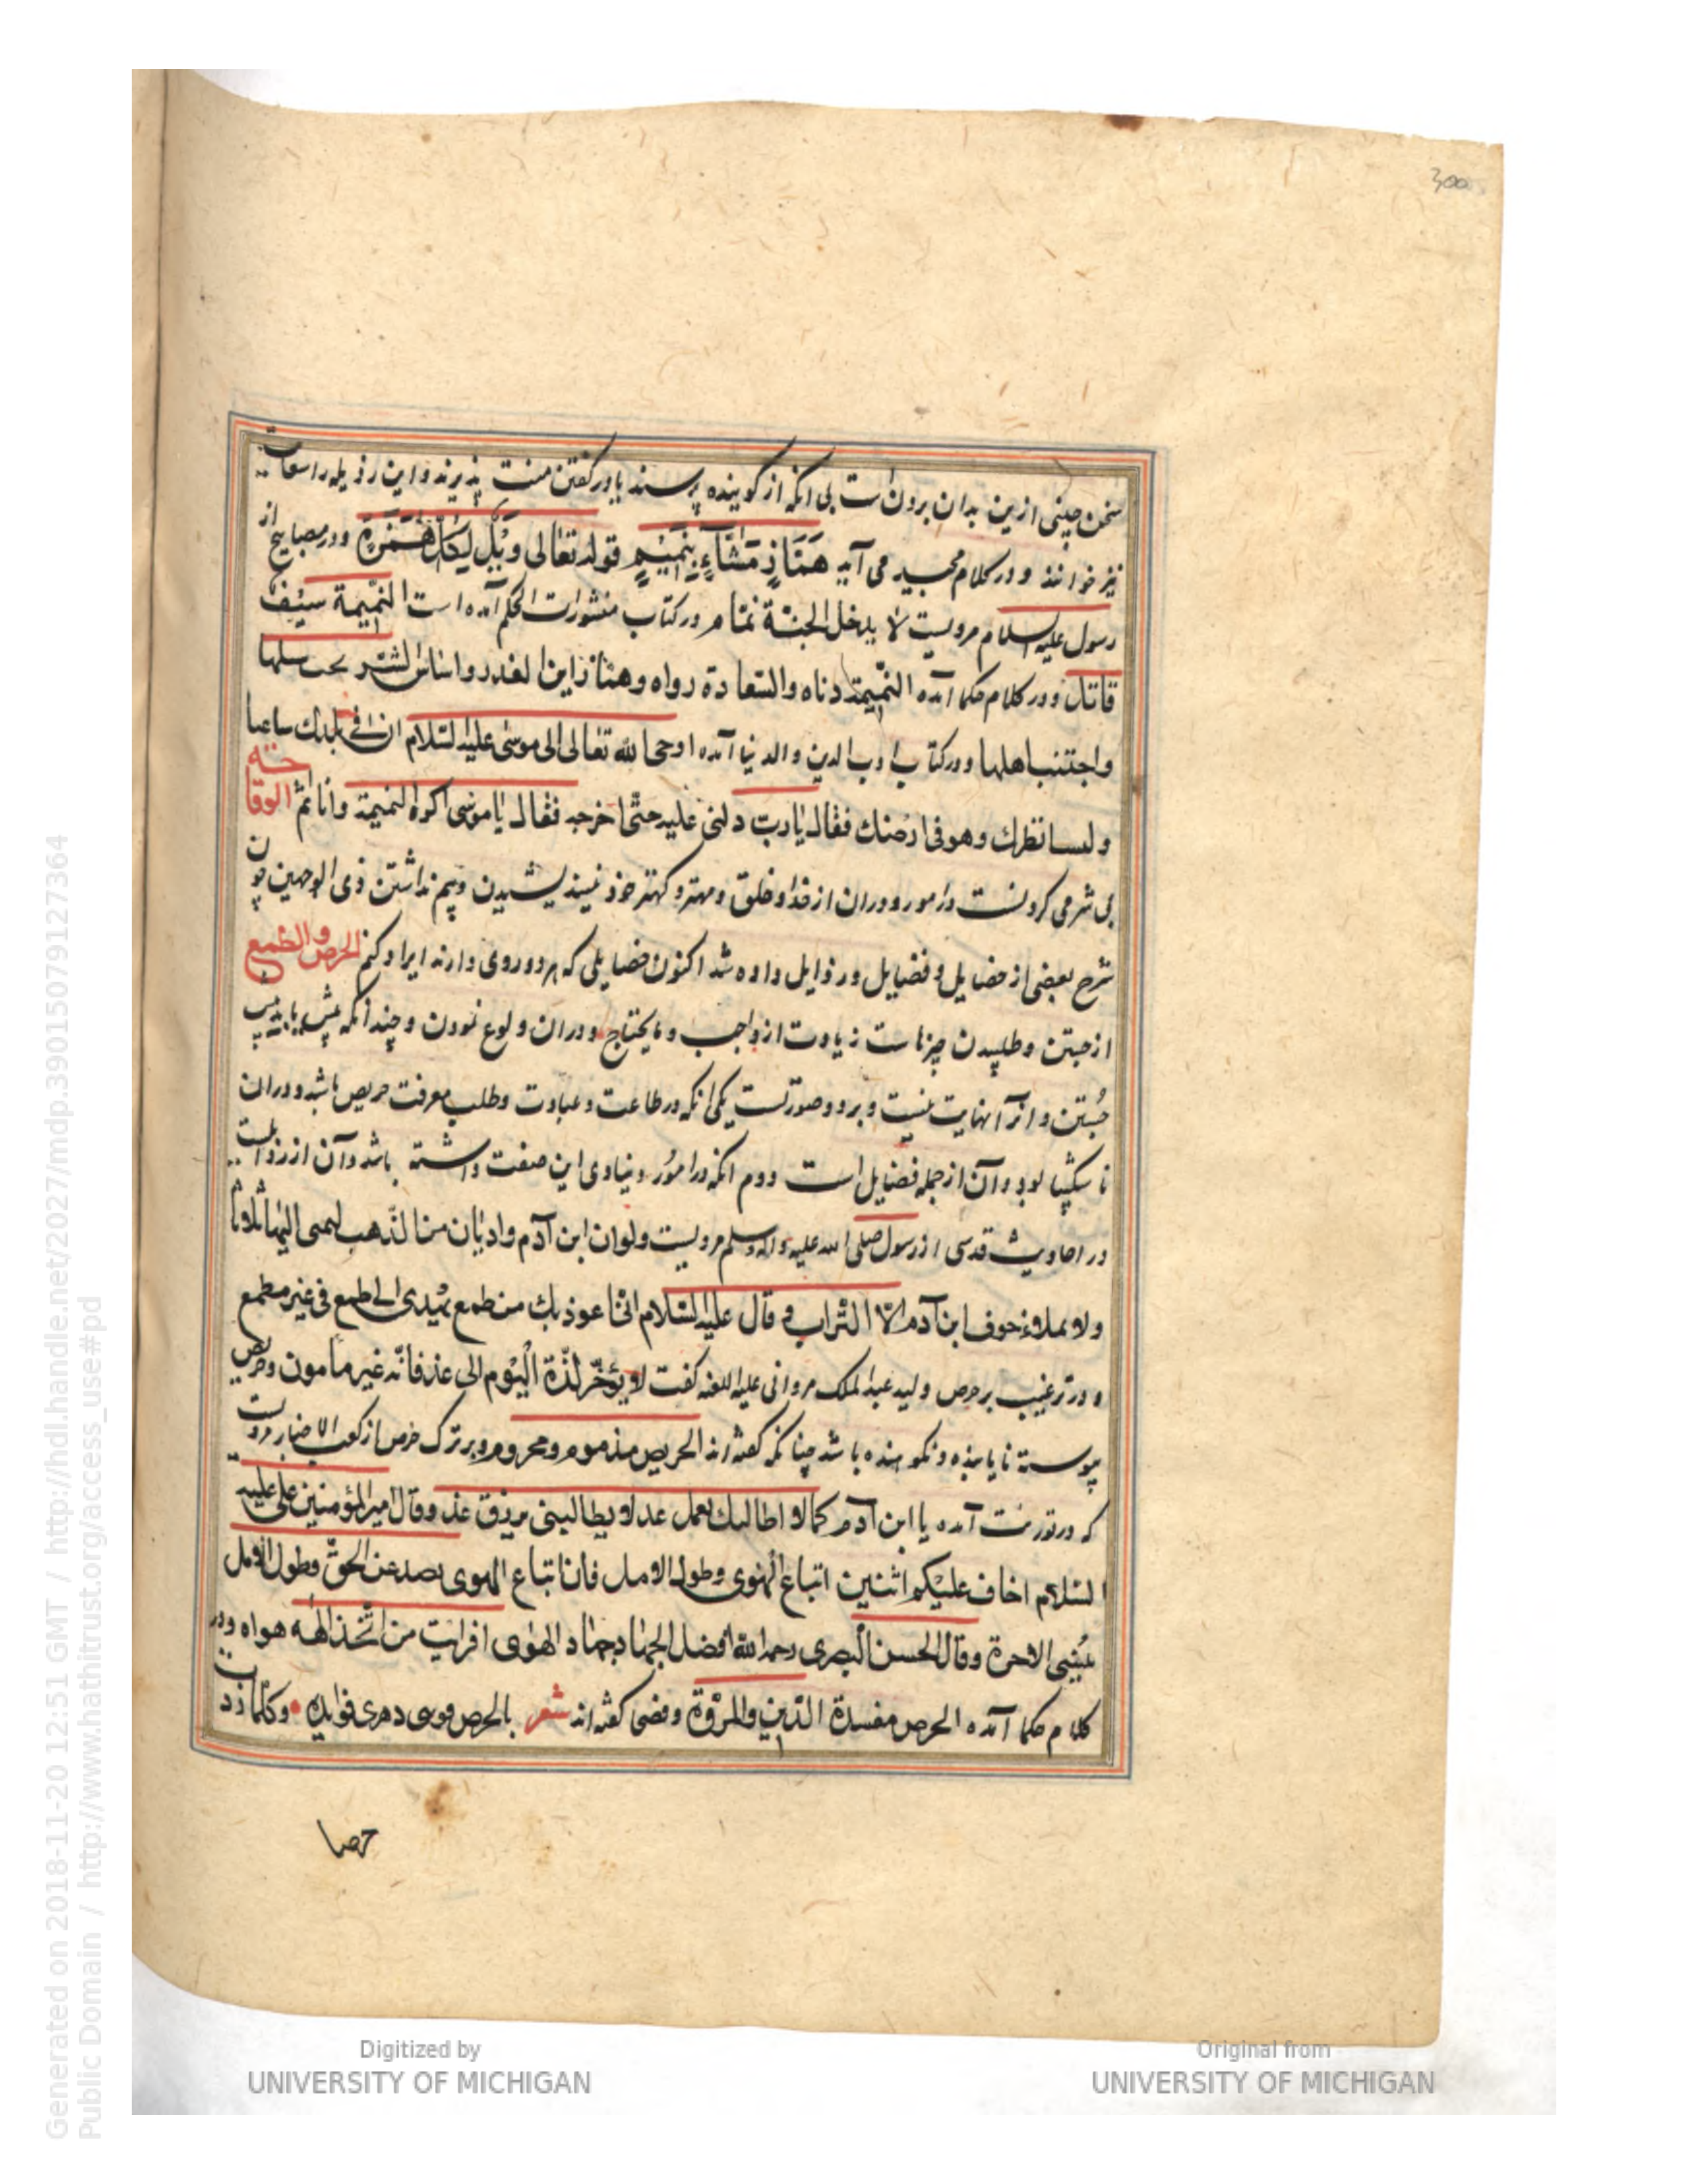 300
سخن چینی ازین بدان برونست بی انکه از کوینده پرسند یا در کفتن منت پذیرند و این رذیله را سعایت
نیز خوانند و در کلام مجید می آید هَمَّازٍ مَشَّآءٍ بِنَمِیْمٍ قوله تعالی وَیْلٌ لِکُلِّ هُمَزَةٍ و در مصابیح از
رسول علیه السلام مرویست لا یدخل الجنّة نمّام در کتاب منثورات الحکم آمده است النمّیمة سیف
قاتل و در کلام حکما آمده النمّیمة دناه والسّعادة رواه وهمّا راین الغدر واساس الشّر
واجتنب اهلها و در کتاب ادب الدین و الدنیا آمده اوحی الله تعالی الی موسی علیه السّلام ان فی بلدك ساعیا
ولست انظرك وهو فی ارضك فقال یا ربّ دلنی علیه حتّی اخرجه فقال یا موسی اکره النمیمة وانا نمّ الوقاحة
بی شرمی کردنست در امور و در ان از خدا و خلق و مهتر و کهتر خود نیندیشیدن و بیم نداشتن ذی الوجهین چون
شرح بعضی از خصایل و فضایل و رذایل داده شد اکنون خصایلی که هر دو روی دارند ایراد کنم الحرص والطّمع
از جستن و طلبیدن چیزهاست زیادت از واجب و مایحتاج و دران ولوع نمودن و چندانکه بیش یابد بیش
جُستن و انرا نهایت نیست و بر دو صورتست یکی انکه در طاعت و عبادت و طلب معرفت حریص باشد و دران
ناشکیبا بود و آن از جمله فضایل است دوم انکه در امُور دنیاوی این صفت داشته باشد و آن از رذایلست
در احادیث قدسی از رسول صلی الله علیه واله وسلم مرویست ولو ان ابن آدم وادیان من الذّهب لبمی الیهما ثلاثا
ولا یملاء جوف ابن آدم الاّ التّراب و قال علیه السّلام انّی اعوذ بك من طمع یهدی الی طمع فی غیر مطمع
و در ترغیب بر حرص ولید عبد الملک مروانی علیه اللعنه کفت لا یؤخّر لذّة الْیَوْم الی غد فانّه غیر مأمون و حریص
پیوسته نایابنده و نکوهنده باشد چنانکه کفته اند الحریص مذموم ومحروم و بر ترک حرص از کعب الاحبار مرویست
که در تورَیت آمده یا ابن آدم کما لا اطالبك بعمل غد لا یطالبنی برزق غد وقال امیر المؤمنین علی علیه
السّلام اخاف علیْکم اثنین اتباع الْهوی وطول الامل فان اتباع الهوی یصد عن الحقّ وطول الامل
یُنسی الاخرة وقال الحسن الْبصری رحمه الله افضل الجهاد جهاد الهوی افرایت من اتّخذ الٰهه هواه و در
کلام حکما آمده الحرص مفسدة الدّین والمروّة و فضی کفته اند شعر بالحرص فوتنی دهری فوایده • وکلما زد
حرصا
Generated on 2018-11-20 12:51 GMT / http://hdl.handle.net/2027/mdp.39015079127364
Public Domain / http://www.hathitrust.org/access_use#pd
Digitized by
UNIVERSITY OF MICHIGAN
Original from
UNIVERSITY OF MICHIGAN